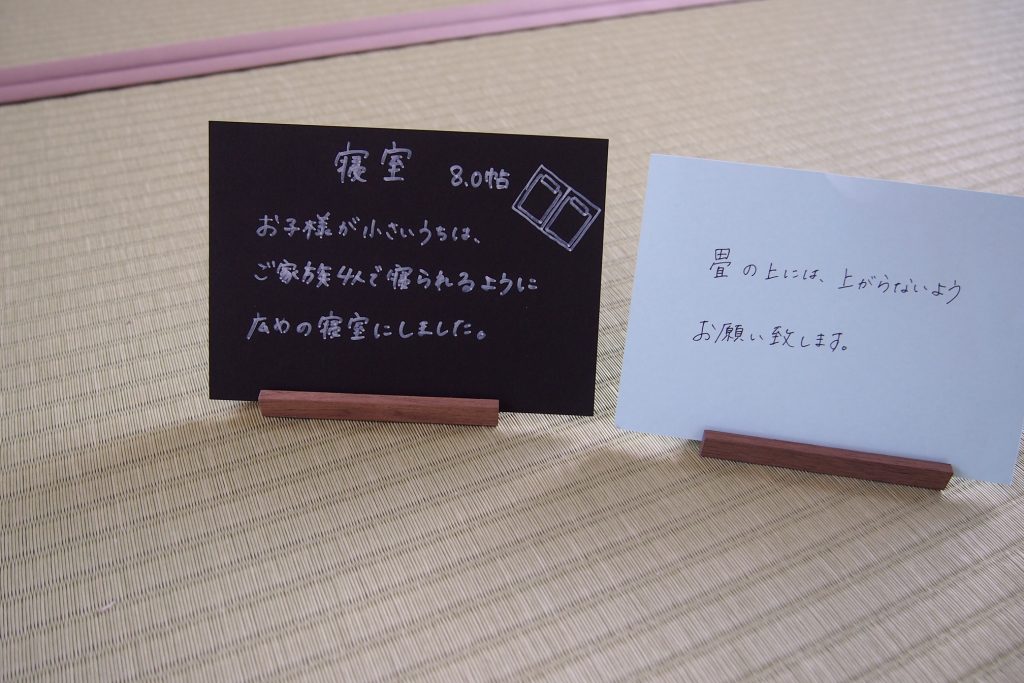 寝室 8.0帖
お子様が小さいうちは、
ご家族4人で寝られるように
広めの寝室にしました。
畳の上には、上がらないよう
お願い致します。